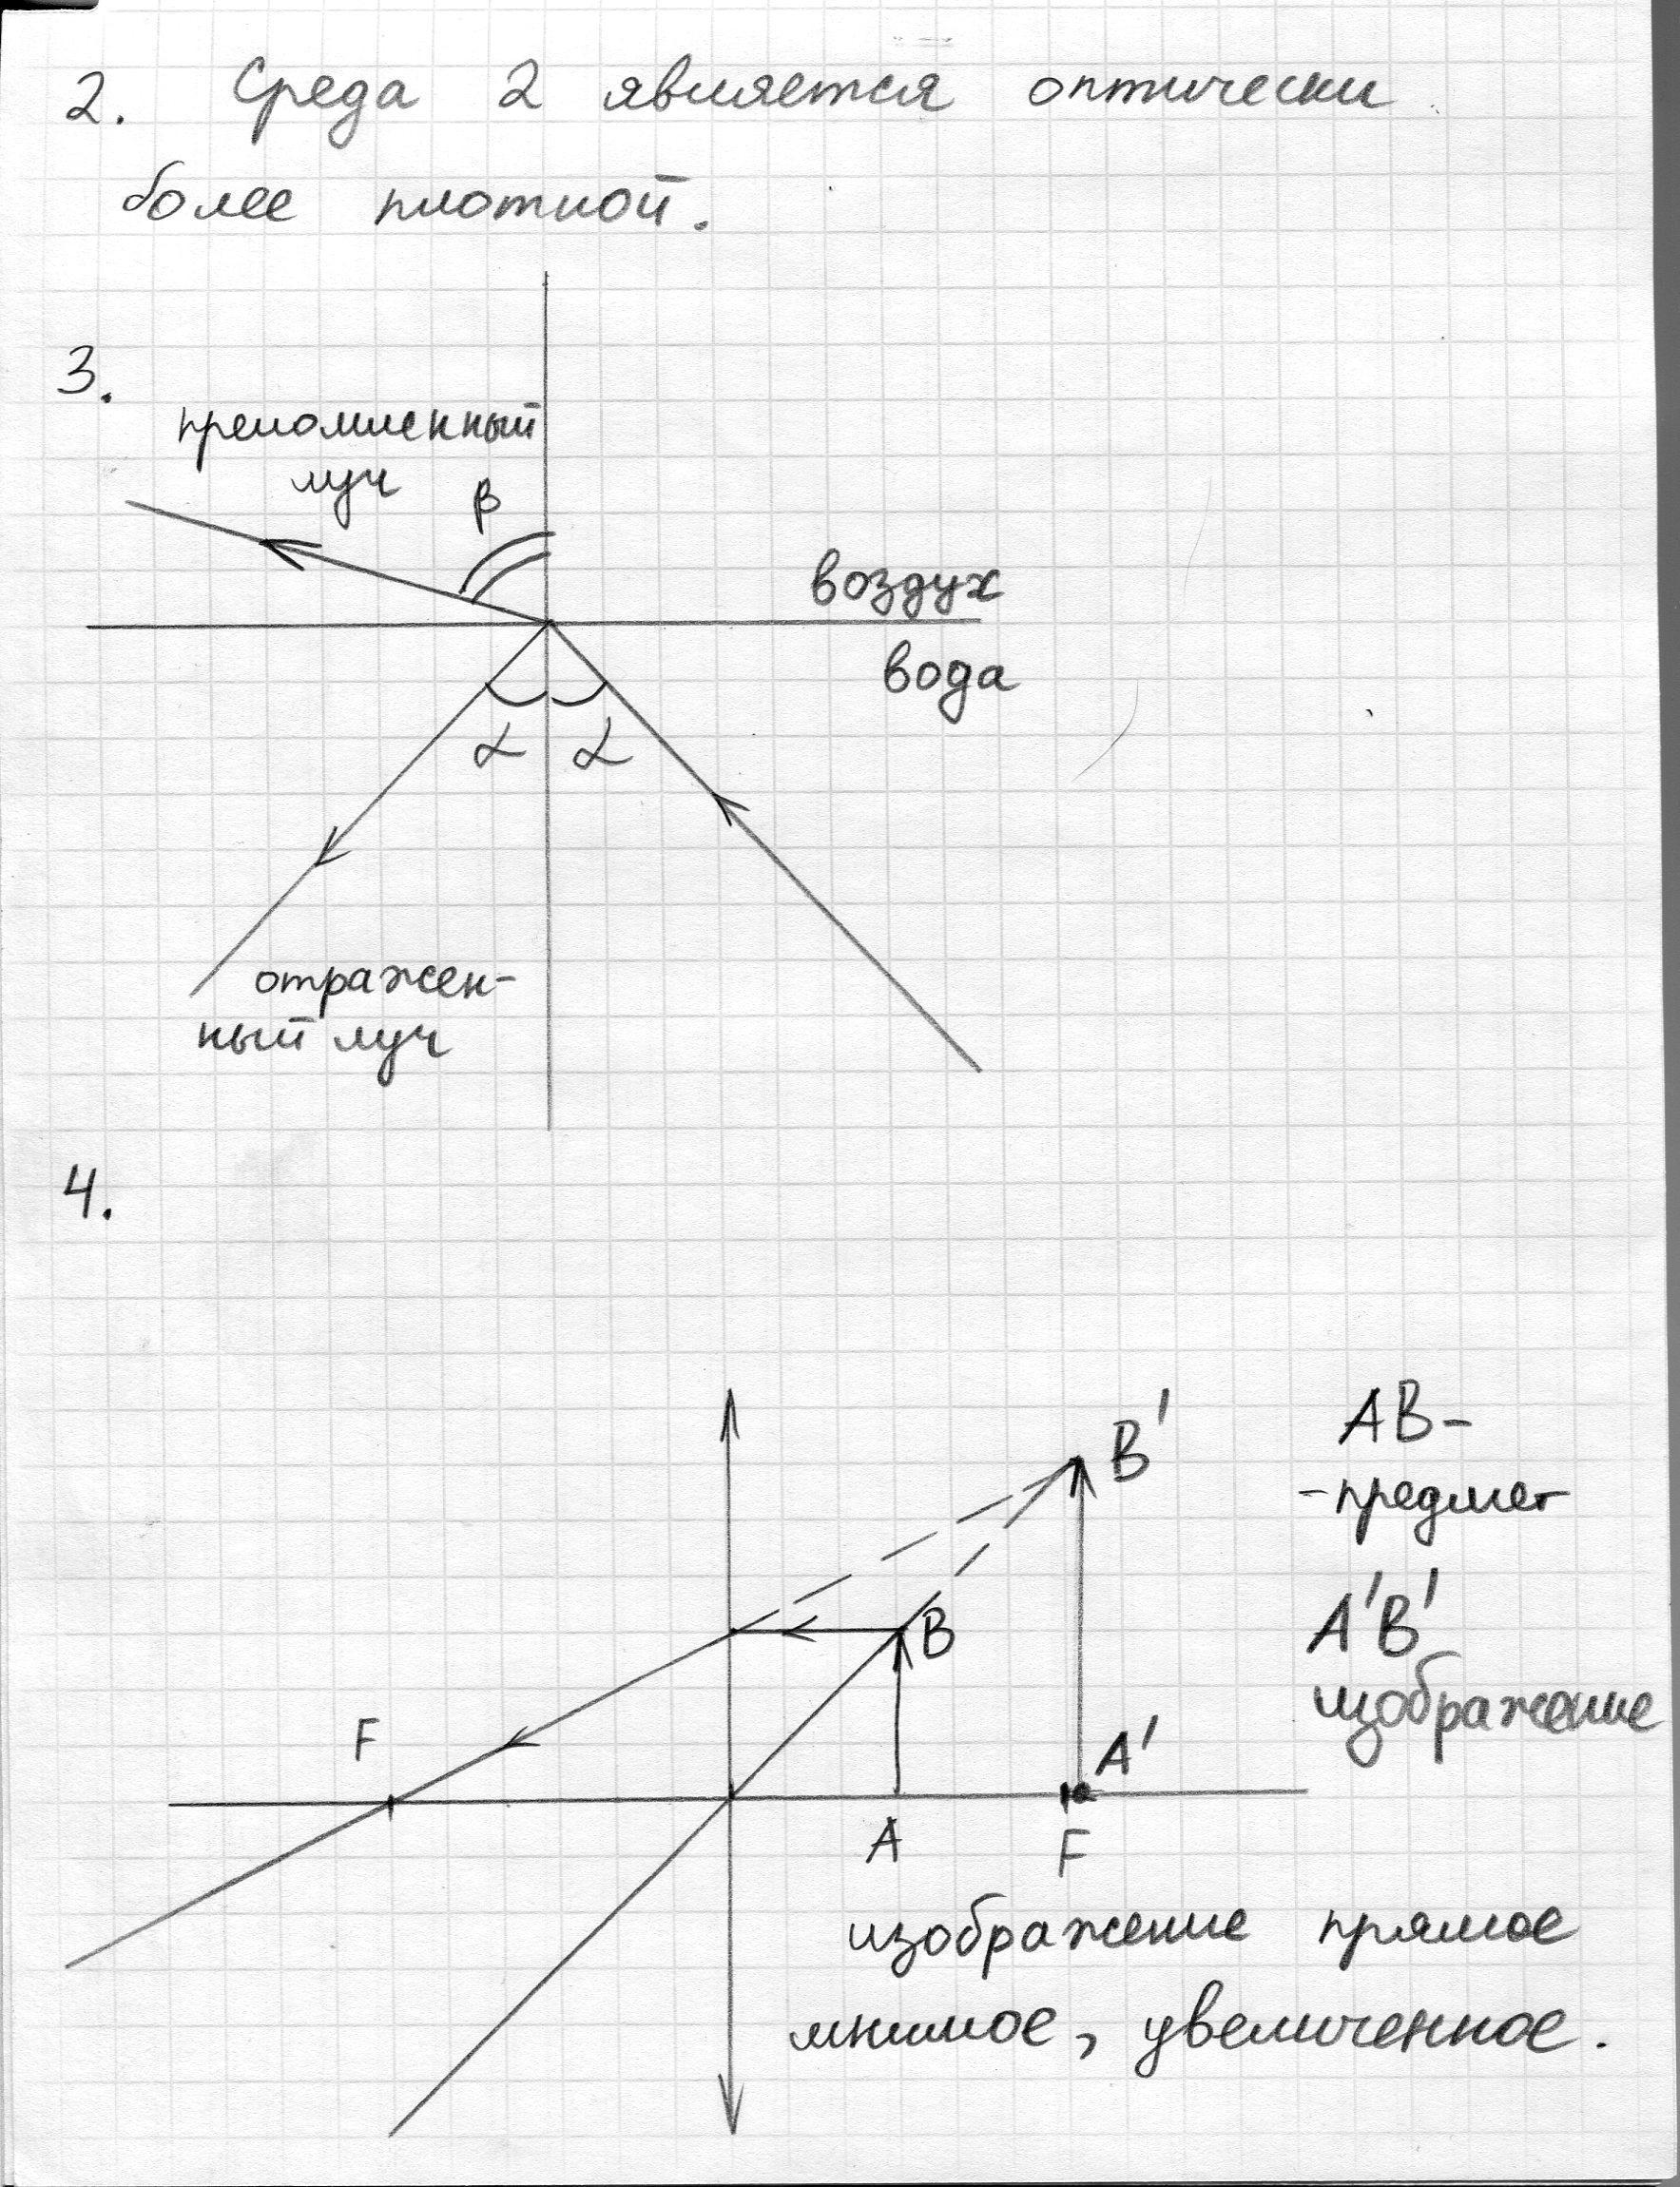 2. Среда 2 является оптически
более плотной.
3.
преломленный
луч
β
воздух
вода
α α
отражен-
ный луч
4.
B'
AB-
-предмет
B
A'B'
изображение
F
A'
A
F
изображение прямое
мнимое, увеличенное.